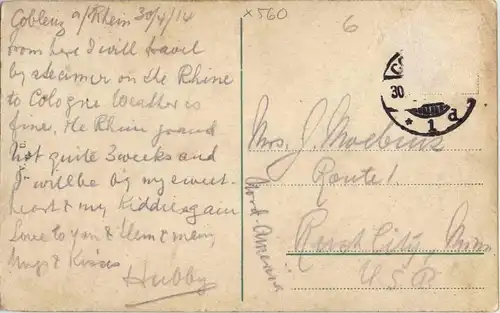 Coblenz a/Rhein 30/4/14
from here I will travel
by a steamer on the Rhine
to Cologne Weather is
fine. The Rhine grand
Not quite 3 weeks and
I will be by my sweet-
heart & my Kiddies again
Love to you & them & many
hugs & Kisses
Hubby
x560
6
30
* 1 d
Mrs. J. Moebius
Route 1.
Rush City, Minn
U.S.A.
Nord America